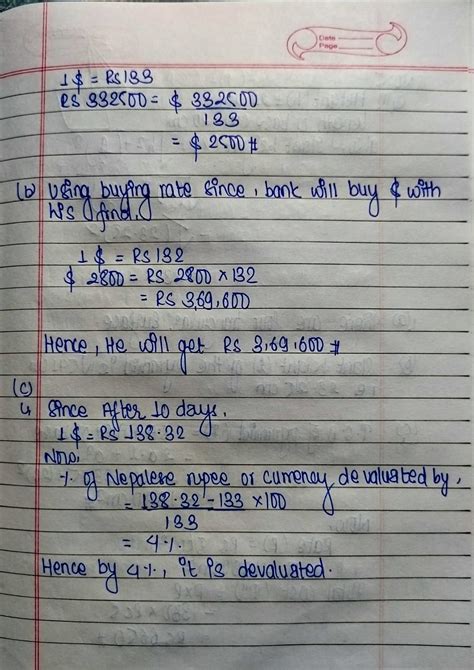 Date
Page
1 $ = RS 133
RS 332500 = $ 332500
133
= $ 2500 #
(b) Using buying rate since, bank will buy $ with
his find.
1 $ = RS 132
$ 2800 = RS 2800 × 132
= RS 3,69,600
Hence, He will get RS 3,69,600 #
(c)
↳ Since After 10 days,
1 $ = RS 138.32
Now,
% of Nepalese rupee or currency devaluated by,
= 138.32 - 133 × 100
133
= 4%.
Hence by 4%, it is devaluated.